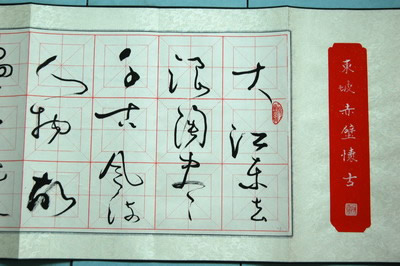 東坡赤壁懷古
大江东去
浪淘尽
千古风流
人物故